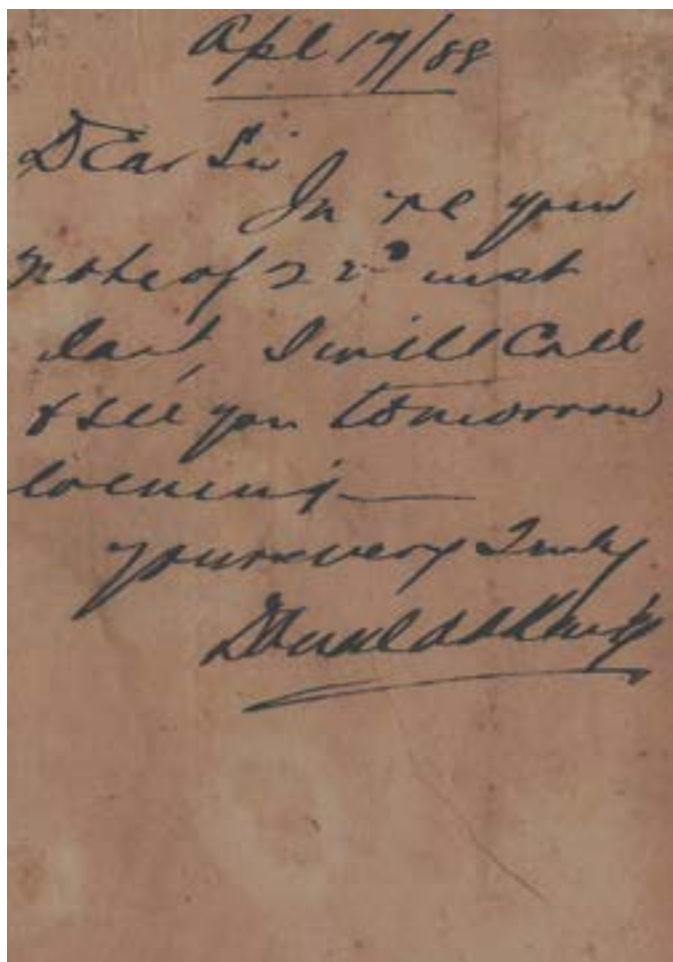 Apl 17/88
Dear Sir
In re your
note of 22º inst
last, I will Call
& see you tomorrow
evening —
yours very Truly